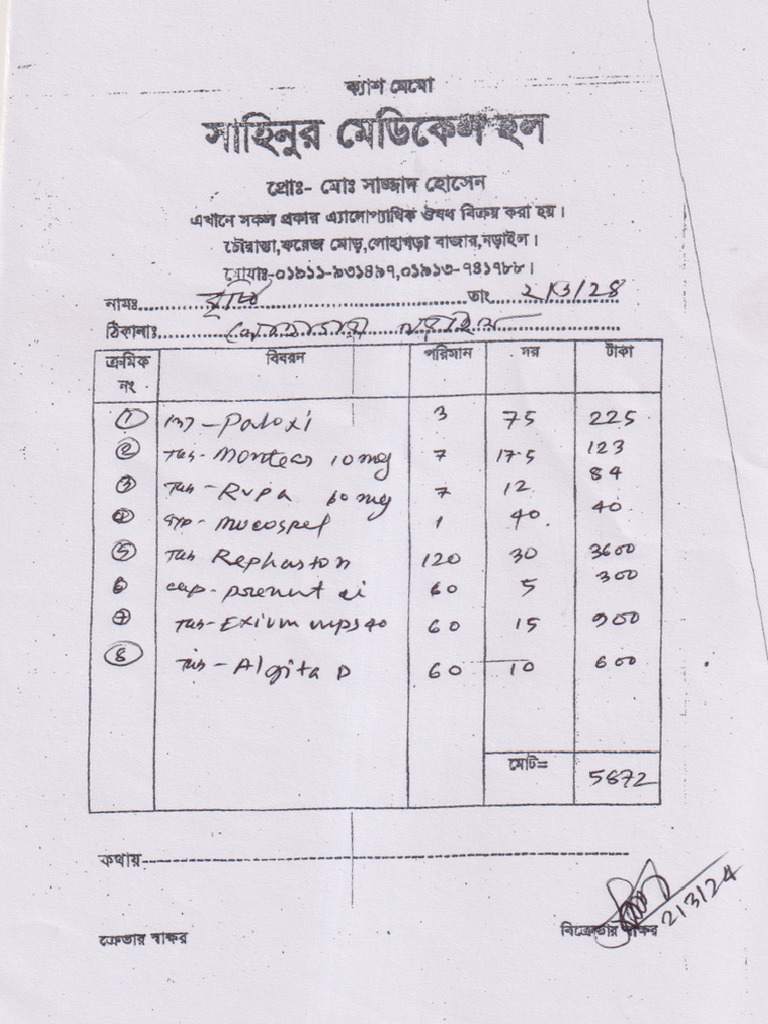 ক্যাশ মেমো
সাহিনুর মেডিকেল হল
প্রোঃ- মোঃ সাজ্জাদ হোসেন
এখানে সকল প্রকার এ্যালোপ্যাথিক ঔষধ বিক্রয় করা হয়।
চৌরাস্তা,কলেজ মোড়,লোহাগড়া বাজার,নড়াইল।
মোবাঃ-০১৯১১-৯৩১৪৯৭,০১৯১৩-৭৪১৭৮৮।
নামঃ তাং
ঠিকানাঃ
ক্রমিক নং বিবরন পরিমান দর টাকা
1 Paloxi 3 75 225
2 Tab- Montear 10mg 7 17.5 123
3 Tab- Rupa 10mg 7 12 84
4 Syp- Mucospel 1 40 40
5 Tab Rephaston 120 30 3600
6 cap- 60 5 300
7 Tab- Exium mups 40 60 15 900
8 Tab- Algita D 60 10 600
মোট= 5872
কথায়
2/3/24
ক্রেতার স্বাক্ষর বিক্রেতার স্বাক্ষর